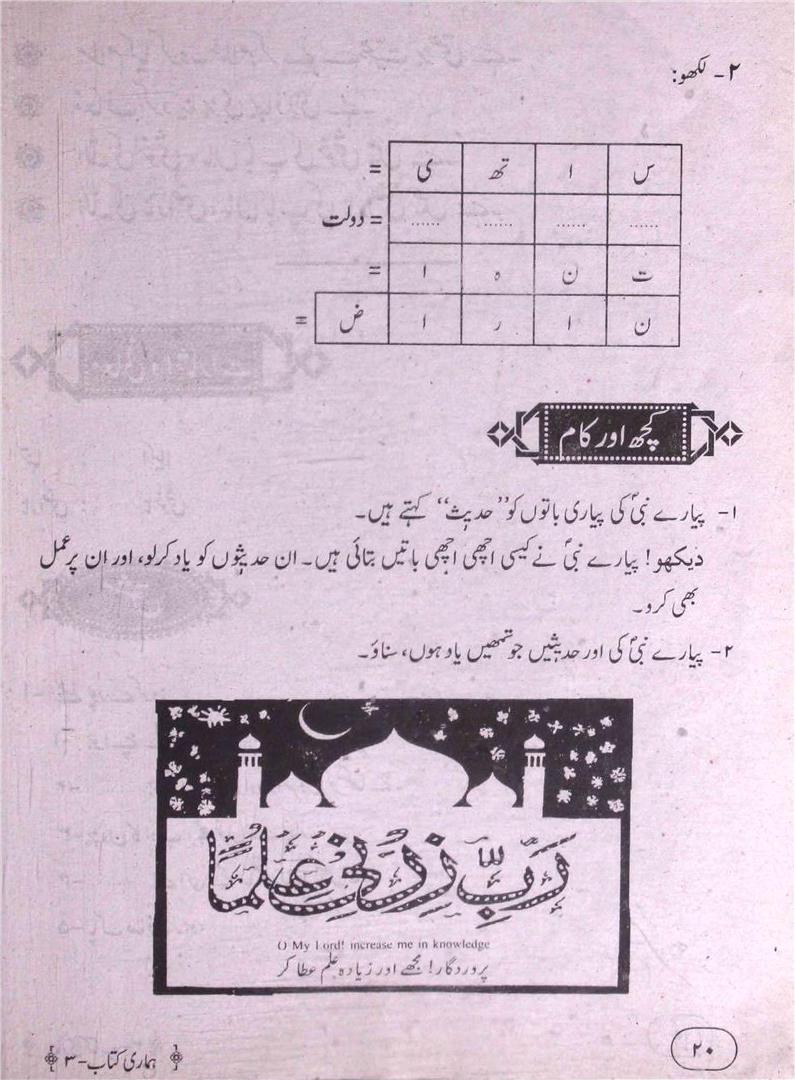 ۲- لکھو:
س ا تھ ی =
...... ...... ...... ...... = دولت
ت ن ہ ا =
ن ا ر ا ض =
کچھ اور کام
۱- پیارے نبیؐ کی پیاری باتوں کو ”حدیث“ کہتے ہیں۔
دیکھو! پیارے نبیؐ نے کیسی اچھی اچھی باتیں بتائی ہیں۔ ان حدیثوں کو یاد کرلو، اور ان پر عمل
بھی کرو۔
۲- پیارے نبیؐ کی اور حدیثیں جو تمھیں یاد ہوں، سناؤ۔
رَبِّ زِدْنِي عِلْمًا
O My Lord! increase me in knowledge
پروردگار! مجھے اور زیادہ علم عطا کر
۲۰
ہماری کتاب-۳